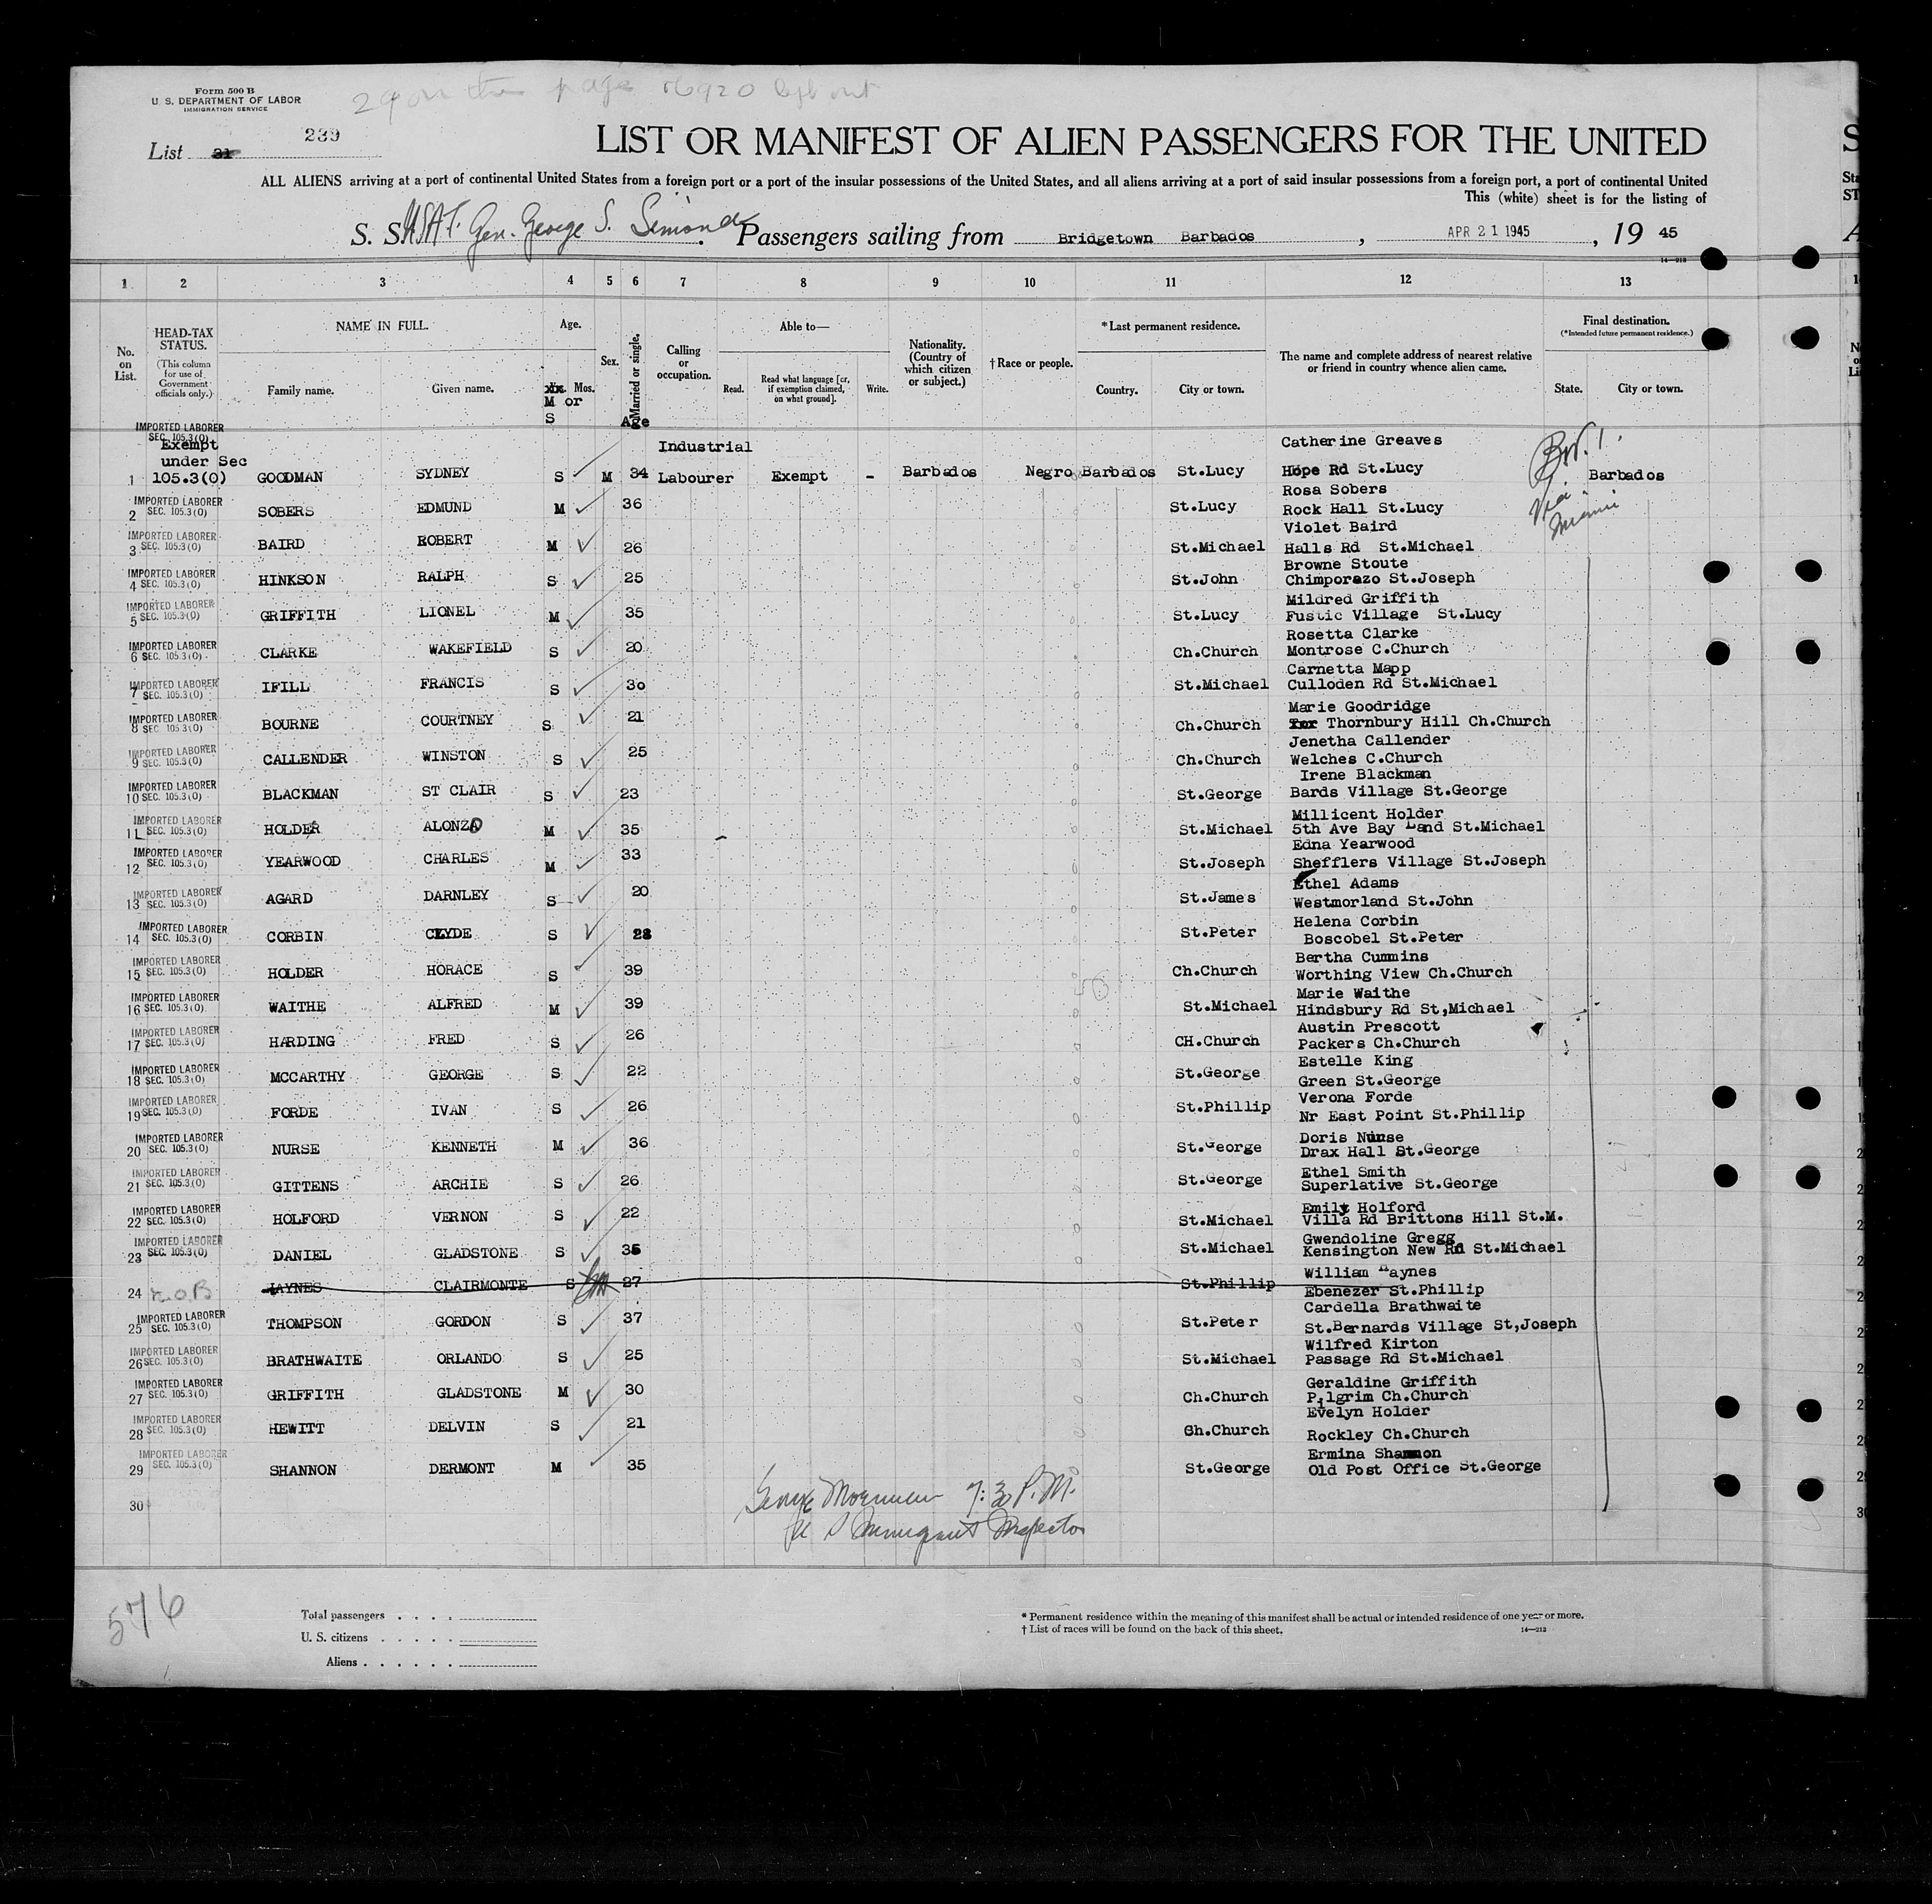 Form 500 B
U. S. DEPARTMENT OF LABOR
IMMIGRATION SERVICE
List 21 239
LIST OR MANIFEST OF ALIEN PASSENGERS FOR THE UNITED
ALL ALIENS arriving at a port of continental United States from a foreign port or a port of the insular possessions of the United States, and all aliens arriving at a port of said insular possessions from a foreign port, a port of continental United
This (white) sheet is for the listing of
S. S. USAT. Gen. George S. Simonds. Passengers sailing from Bridgetown Barbados, APR 21 1945, 19 45
14—213
1 2 3 4 5 6 7 8 9 10 11 12 13
No. on List.
HEAD-TAX STATUS. (This column for use of Government officials only.)
NAME IN FULL. Family name. Given name.
Age. Yrs. Mos. M or S
Sex.
Married or single. Age
Calling or occupation.
Able to— Read. Read what language [or, if exemption claimed, on what ground]. Write.
Nationality. (Country of which citizen or subject.)
†Race or people.
*Last permanent residence. Country. City or town.
The name and complete address of nearest relative or friend in country whence alien came.
Final destination. (*Intended future permanent residence.) State. City or town.
IMPORTED LABORER SEC. 105.3(0)
Exempt under Sec Industrial Catherine Greaves
1 105.3(0) GOODMAN SYDNEY S M 34 Labourer Exempt - Barbados Negro Barbados St.Lucy Hope Rd St.Lucy Barbados
Via Miami
2 IMPORTED LABORER SEC. 105.3(0) SOBERS EDMUND M 36 St.Lucy Rosa Sobers Rock Hall St.Lucy
3 IMPORTED LABORER SEC. 105.3(0) BAIRD ROBERT M 26 St.Michael Violet Baird Halls Rd St.Michael
4 IMPORTED LABORER SEC. 105.3(0) HINKSON RALPH S 25 St.John Browne Stoute Chimporazo St.Joseph
5 IMPORTED LABORER SEC. 105.3(0) GRIFFITH LIONEL M 35 St.Lucy Mildred Griffith Fustic Village St.Lucy
6 IMPORTED LABORER SEC. 105.3(0) CLARKE WAKEFIELD S 20 Ch.Church Rosetta Clarke Montrose C.Church
7 IMPORTED LABORER SEC. 105.3(0) IFILL FRANCIS S 30 St.Michael Carnetta Mapp Culloden Rd St.Michael
8 IMPORTED LABORER SEC. 105.3(0) BOURNE COURTNEY S 21 Ch.Church Marie Goodridge Thornbury Hill Ch.Church
9 IMPORTED LABORER SEC. 105.3(0) CALLENDER WINSTON S 25 Ch.Church Jenetha Callender Welches C.Church
10 IMPORTED LABORER SEC. 105.3(0) BLACKMAN ST CLAIR S 23 St.George Irene Blackman Bards Village St.George
11 IMPORTED LABORER SEC. 105.3(0) HOLDER ALONZO M 35 St.Michael Millicent Holder 5th Ave Bay Land St.Michael
12 IMPORTED LABORER SEC. 105.3(0) YEARWOOD CHARLES M 33 St.Joseph Edna Yearwood Shefflers Village St.Joseph
13 IMPORTED LABORER SEC. 105.3(0) AGARD DARNLEY S 20 St.James Ethel Adams Westmorland St.John
14 IMPORTED LABORER SEC. 105.3(0) CORBIN CLYDE S 28 St.Peter Helena Corbin Boscobel St.Peter
15 IMPORTED LABORER SEC. 105.3(0) HOLDER HORACE S 39 Ch.Church Bertha Cummins Worthing View Ch.Church
16 IMPORTED LABORER SEC. 105.3(0) WAITHE ALFRED M 39 St.Michael Marie Waithe Hindsbury Rd St,Michael
17 IMPORTED LABORER SEC. 105.3(0) HARDING FRED S 26 CH.Church Austin Prescott Packers Ch.Church
18 IMPORTED LABORER SEC. 105.3(0) MCCARTHY GEORGE S 22 St.George Estelle King Green St.George
19 IMPORTED LABORER SEC. 105.3(0) FORDE IVAN S 26 St.Phillip Verona Forde Nr East Point St.Phillip
20 IMPORTED LABORER SEC. 105.3(0) NURSE KENNETH M 36 St.George Doris Nurse Drax Hall St.George
21 IMPORTED LABORER SEC. 105.3(0) GITTENS ARCHIE S 26 St.George Ethel Smith Superlative St.George
22 IMPORTED LABORER SEC. 105.3(0) HOLFORD VERNON S 22 St.Michael Emily Holford Villa Rd Brittons Hill St.M.
23 IMPORTED LABORER SEC. 105.3(0) DANIEL GLADSTONE S 35 St.Michael Gwendoline Gregg Kensington New Rd St.Michael
24 N.O.B HAYNES CLAIRMONTE S 27 St.Phillip William Haynes Ebenezer St.Phillip
25 IMPORTED LABORER SEC. 105.3(0) THOMPSON GORDON S 37 St.Peter Cardella Brathwaite St.Bernards Village St,Joseph
26 IMPORTED LABORER SEC. 105.3(0) BRATHWAITE ORLANDO S 25 St.Michael Wilfred Kirton Passage Rd St.Michael
27 IMPORTED LABORER SEC. 105.3(0) GRIFFITH GLADSTONE M 30 Ch.Church Geraldine Griffith Pilgrim Ch.Church
28 IMPORTED LABORER SEC. 105.3(0) HEWITT DELVIN S 21 Ch.Church Evelyn Holder Rockley Ch.Church
29 IMPORTED LABORER SEC. 105.3(0) SHANNON DERMONT M 35 St.George Ermina Shannon Old Post Office St.George
30
7:30 P.M.
U S Immigrant Inspector
576
Total passengers . . . .
U. S. citizens . . . . .
Aliens . . . . . .
* Permanent residence within the meaning of this manifest shall be actual or intended residence of one year or more.
† List of races will be found on the back of this sheet.
14—213